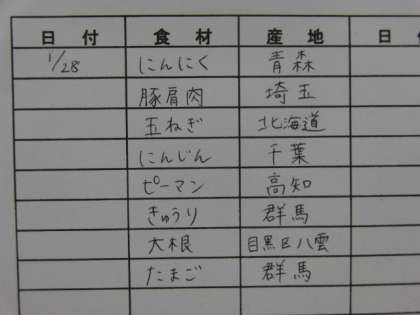 日付 食材 産地 日
1/28 にんにく 青森
豚肩肉 埼玉
玉ねぎ 北海道
にんじん 千葉
ピーマン 高知
きゅうり 群馬
大根 目黒区八雲
たまご 群馬